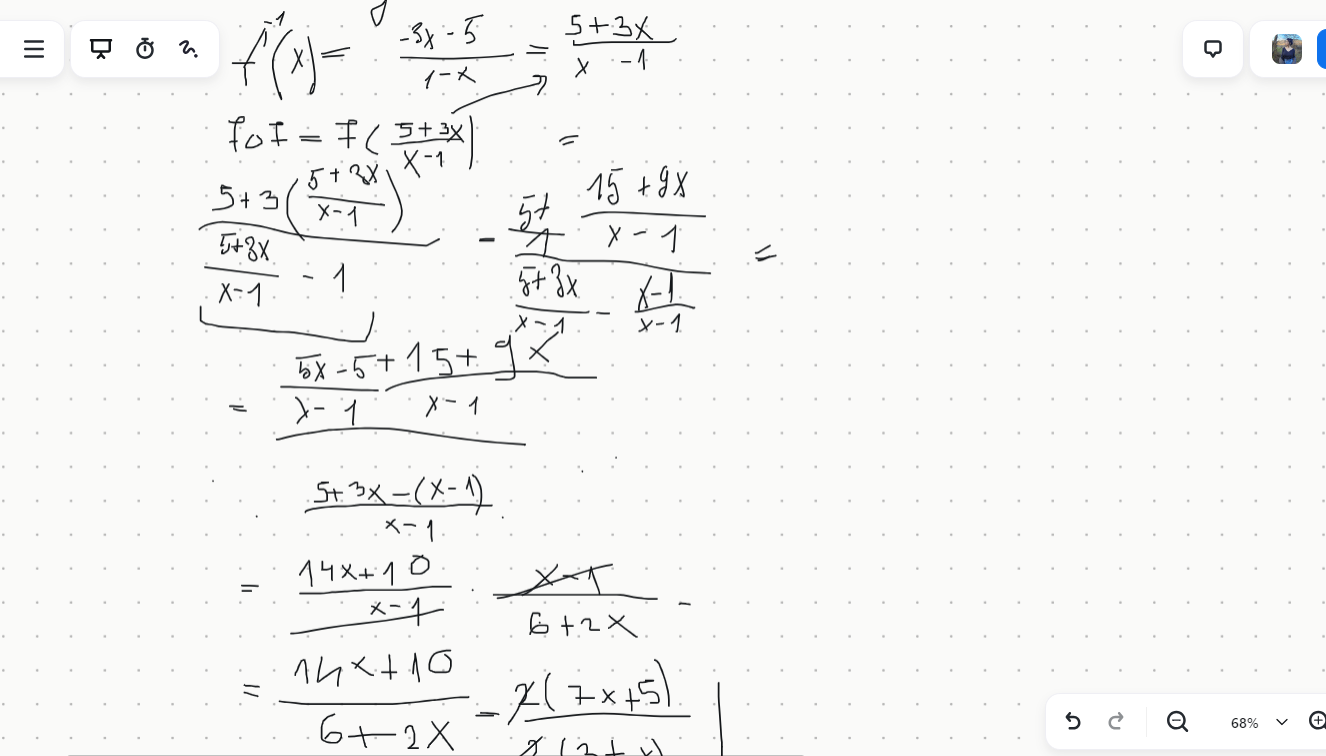 f⁻¹(x) = (-3x - 5)/(1 - x) = (5 + 3x)/(x - 1)
f o f = f((5 + 3x)/(x - 1)) =
(5 + 3((5 + 3x)/(x - 1)))/((5 + 3x)/(x - 1) - 1) - (5/1 + (15 + 9x)/(x - 1))/((5 + 3x)/(x - 1) - (x - 1)/(x - 1)) =
= ((5x - 5)/(x - 1) + (15 + 9x)/(x - 1))/((5 + 3x - (x - 1))/(x - 1))
= (14x + 10)/(x - 1) · (x - 1)/(6 + 2x) -
= (14x + 10)/(6 + 2x) = 2(7x + 5)/2(3 + x)
68%